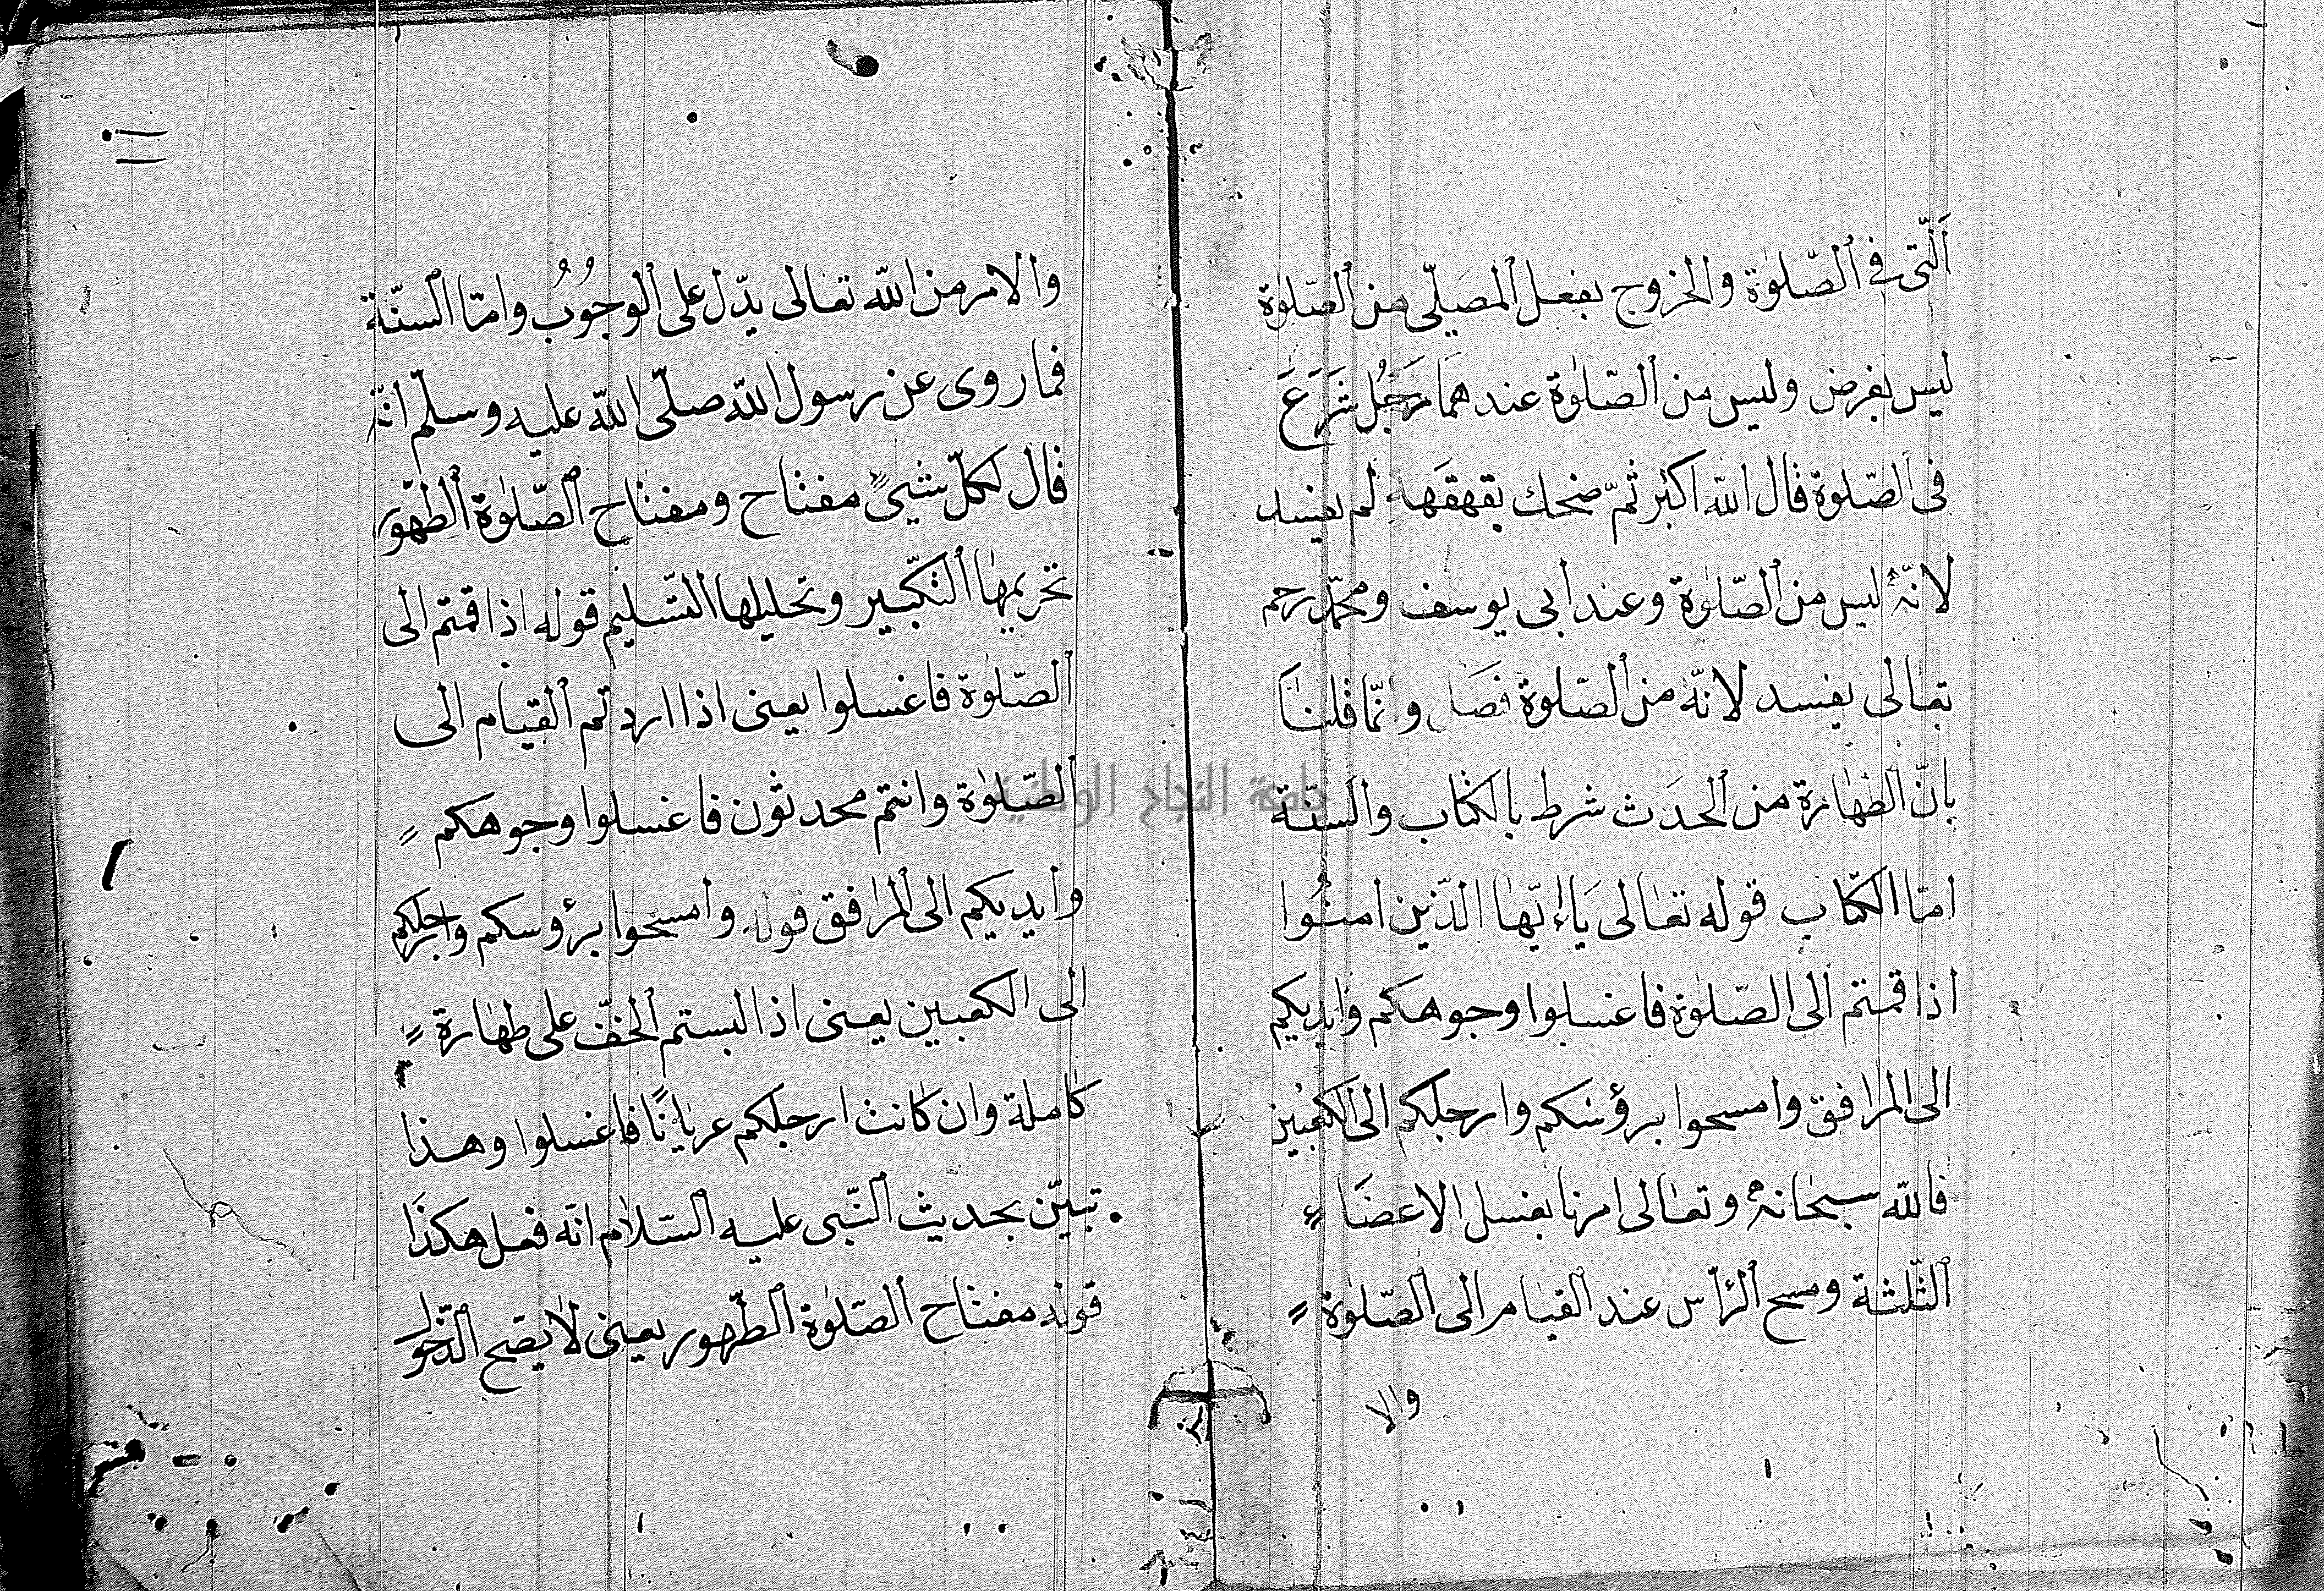 اَلّتى فى اَلصّلوٰة والخروج بفعل اَلمصَلّى من اَلصّلوٰة
ليس بفرض وليس من اَلصّلوٰة عندهمَا رَجُل شَرَعَ
فى الصّلوة قال اللّه اكبر ثمّ ضحك بقهقَهةٍ لم يفسد
لانّهُ ليس من اَلصّلوٰة وعند أبى يوسف ومحمّد رحم
تعٰالى يفسد لانّهُ من اَلصّلوة فصَل وانّما قلنٰا
بانّ اَلطّهٰارة من اَلحدَث شرط بالكتٰاب والسّنّة
امّا الكتٰاب قوله تعٰالى يٰاءايّهٰا الّذين امنُوا
اذا قمتم الى الصّلوٰة فاغسلوا وجوهكم وايديكم
الى المرٰافق وامسحوا برؤسكم وارجلكم الى الكعبين
فاللّه سبحٰانهُ وتعٰالى امرنا بغسل الاعضَاء
اَلثّلثة ومسح اَلرّأس عند اَلقيٰام الى اَلصّلوٰة
والا
والامر من اللّه تعٰالى يدّل على اَلوجُوُبُ وامّا اَلسنّة
فما روى عن رسول اللّه صلّى اللّه عليه وسلّم انّه
قال لكلّ شيىءٍ مفتٰاح ومفتٰاح اَلصّلوٰة اَلطّهور
تحريمهٰا اَلتّكبّير وتحليلها اَلتّسليم قوله اذا قمتم الى
اَلصّلوٰة فاغسلوا يعنى اذا اردتم اَلقيام الى
اَلصّلوٰة وانتم محدثون فاغسلوا وجوهكم
وايديكم الى اَلمرٰافق قوله وامسحوا برؤسكم وارجلكم
الى الكعبين يعنى اذا لبستم اَلخفّ على طهٰارة
كٰاملة وان كٰانت ارجلكم عريٰانًا فاغسلوا وهذا
تبيّن بحديث اَلنّبى عليه اَلسّلام انّه فعل هكذَا
قوله مفتٰاح اَلصّلوٰة اَلطّهور يعنى لا يصّح اَلدّخول
جامعة النجاح الوطنية